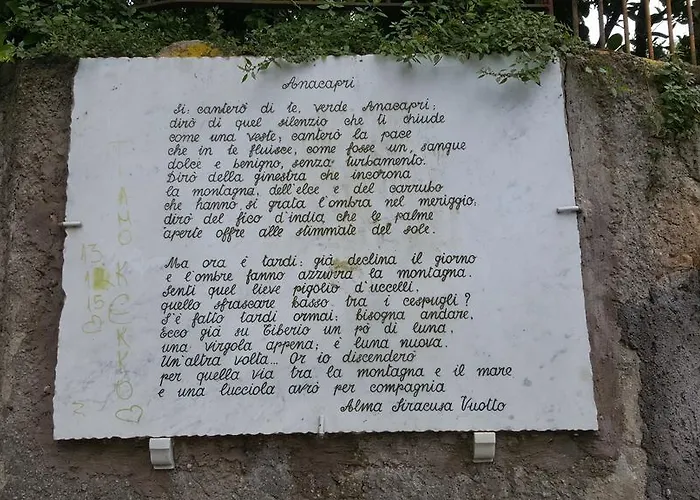 Anacapri
Si: canterò di te, verde Anacapri;
dirò di quel silenzio che ti chiude
come una veste; canterò la pace
che in te fluisce, come fosse un, sangue
dolce e benigno, senza turbamento.
Dirò della ginestra che incorona
la montagna, dell'elce e del carrubo
che hanno sì grata l'ombra nel meriggio;
dirò del fico d'india che le palme
aperte offre alle stimmate del sole.
Ma ora è tardi: già declina il giorno
e l'ombre fanno azzurra la montagna.
Senti quel lieve pigolio d'uccelli,
quello sfrascare basso tra i cespugli?
S'è fatto tardi ormai: bisogna andare,
Ecco già su Tiberio un pò di luna,
una virgola appena; è luna nuova.
Un'altra volta... Or io discenderò
per quella via tra la montagna e il mare
e una lucciola avrò per compagnia
Alma Siracusa Vuotto
13